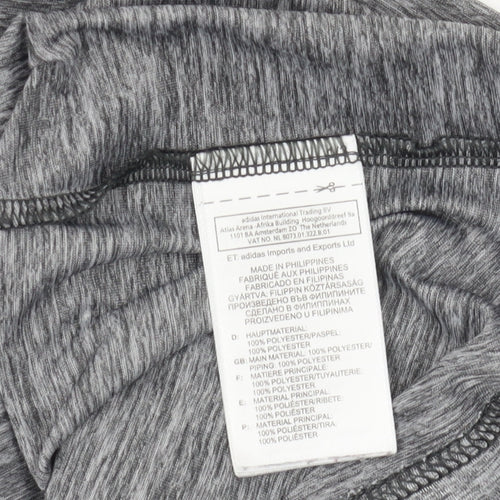 adidas International Trading BV
Atlas Arena -Afrika Building Hoogoorddreef 9a
1101 BA Amsterdam ZO The Netherlands
VAT NO. NL 8073.01.322.B.01
ET. adidas Imports and Exports Ltd
MADE IN PHILIPPINES
FABRIQUÉ AUX PHILIPPINES
FABRICADO EN FILIPINAS
GYÁRTVA: FILIPPIN KÖZTÁRSASÁG
ПРОИЗВЕДЕНО ВЪВ ФИЛИПИНИТЕ
СДЕЛАНО В ФИЛИППИНАХ
PROIZVEDENO U FILIPINIMA
D: HAUPTMATERIAL:
100% POLYESTER/PASPEL:
100% POLYESTER
GB: MAIN MATERIAL: 100% POLYESTER/
PIPING: 100% POLYESTER
F: MATIERE PRINCIPALE:
100% POLYESTER/TUYAUTERIE:
100% POLYESTER
E: MATERIAL PRINCIPAL:
100% POLIÉSTER/RIBETE
100% POLIÉSTER
P: MATERIAL PRINCIPAL:
100% POLIÉSTER/
100% POLIÉSTER